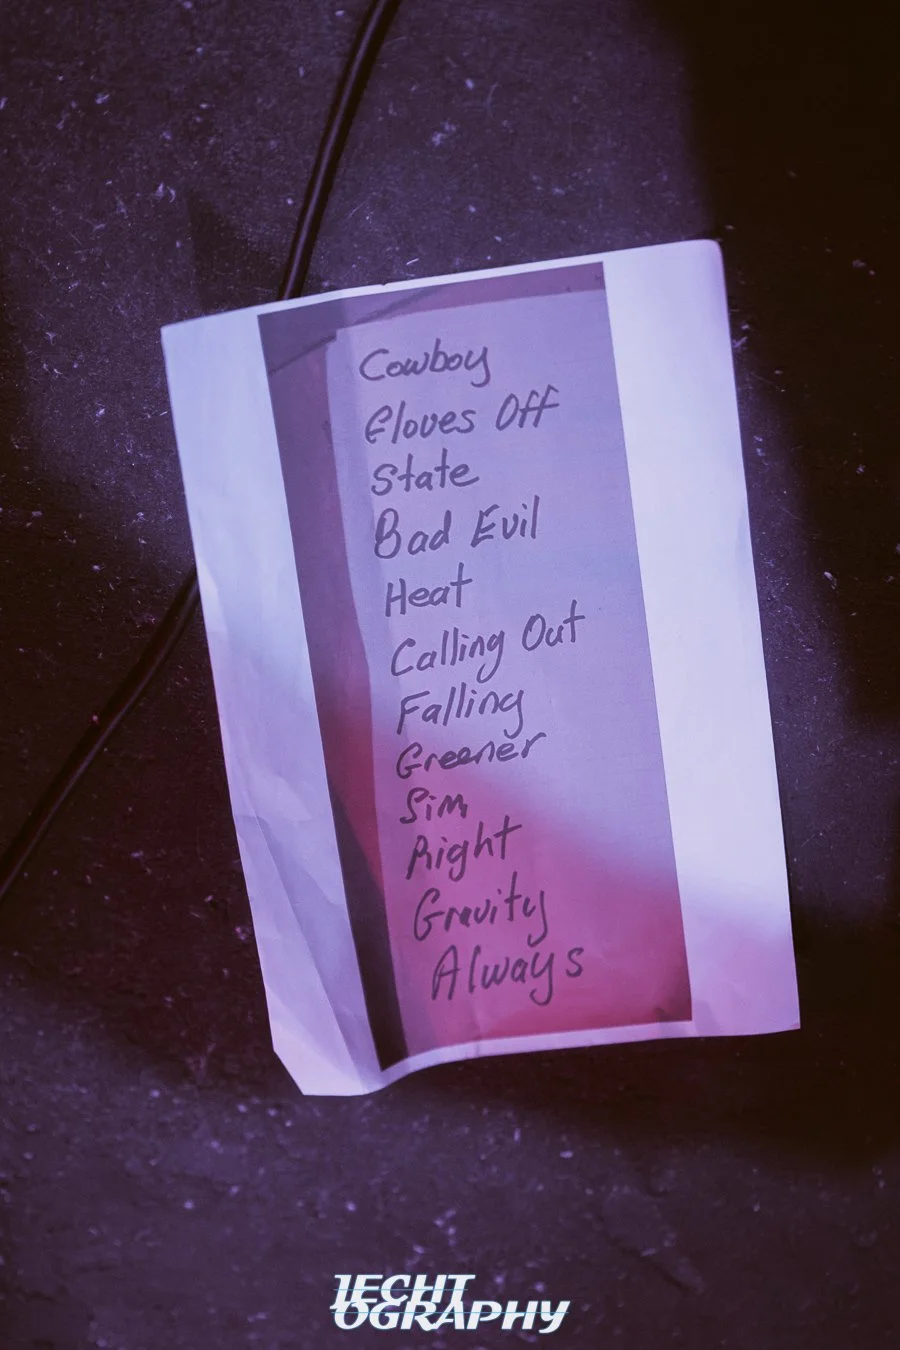 Cowboy
Gloves Off
State
Bad Evil
Heat
Calling Out
Falling
Greener
Sim
Right
Gravity
Always
IECHT
OGRAPHY